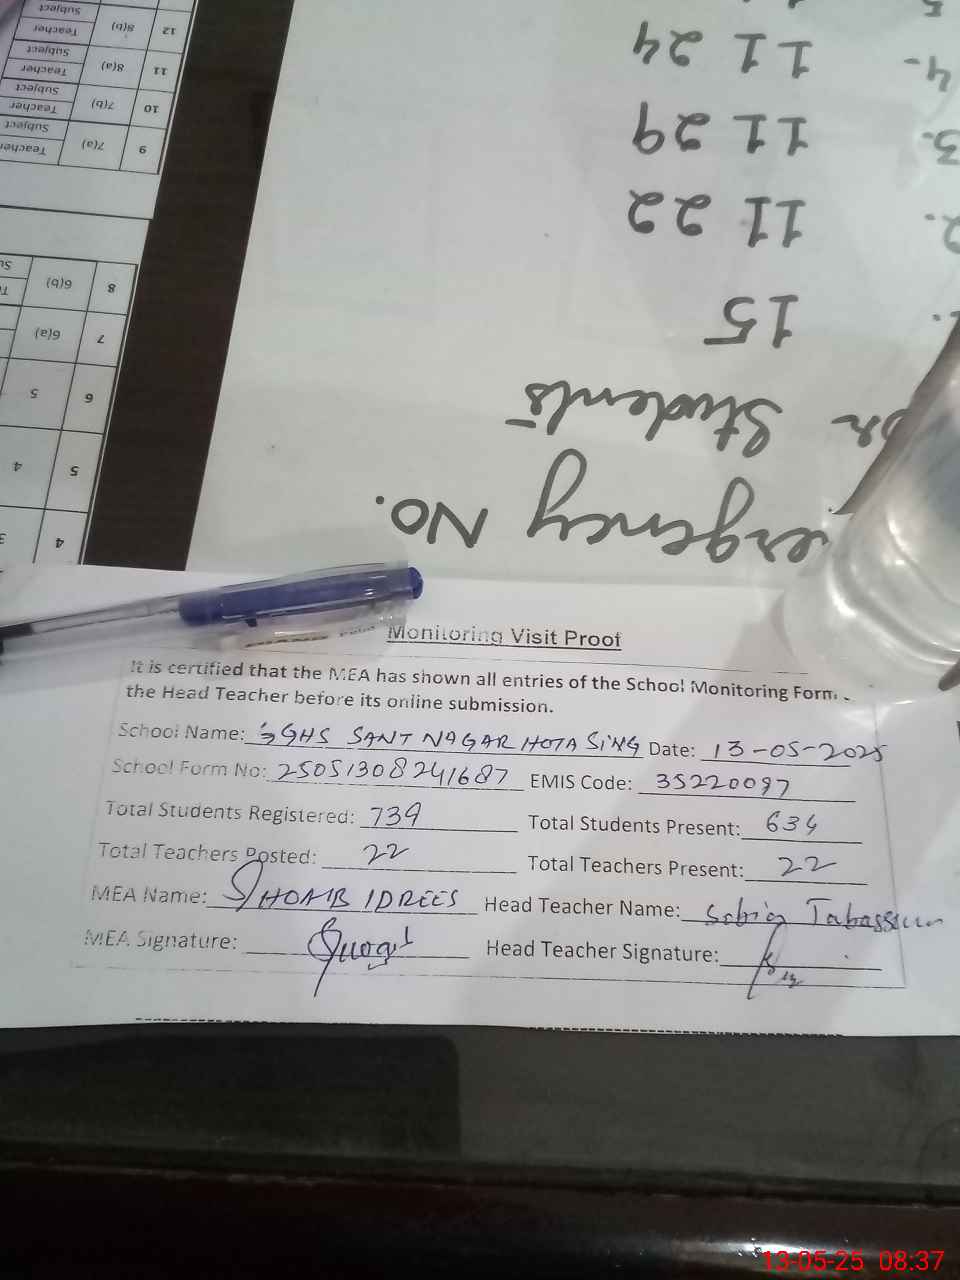 12 8(b) Teacher Subject
11 8(a) Teacher Subject
10 7(b) Teacher Subject
9 7(a) Teacher Subject
8 6(b)
7 6(a)
6 5
5 4
4 3
ergency No.
Students
1. 15
2. 11 22
3. 11 29
4. 11 24
5
Monitoring Visit Proof
It is certified that the MEA has shown all entries of the School Monitoring Form
the Head Teacher before its online submission.
School Name: GGHS SANT NAGAR HOTA SING Date: 13-05-2025
School Form No: 25051308241687 EMIS Code: 35220097
Total Students Registered: 739 Total Students Present: 634
Total Teachers Posted: 22 Total Teachers Present: 22
MEA Name: SHOAIB IDREES Head Teacher Name: Sobia Tabassum
MEA Signature: Head Teacher Signature:
13-05-25 08:37